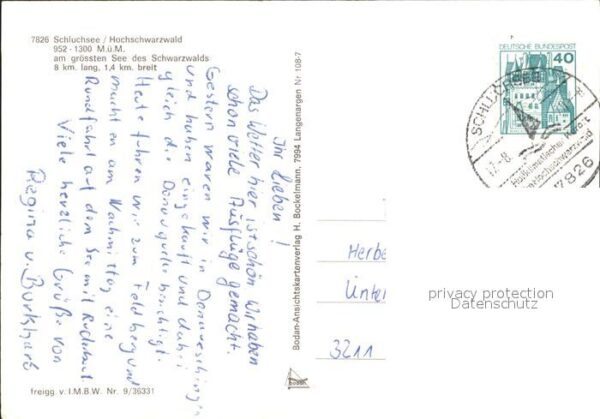 7826 Schluchsee / Hochschwarzwald
952 - 1300 M.ü.M.
am grössten See des Schwarzwalds
8 km lang, 1,4 km breit
Ihr Lieben!
Das Wetter hier ist schön. Wir haben
schon viele Ausflüge gemacht.
Gestern waren wir in Donaueschingen
und haben eingekauft und dabei
gleich die Donauquelle besichtigt.
Heute fuhren wir zum Feldberg und
machten am Nachmittag eine
Rundfahrt auf dem See mit
Viele herzliche Grüße von
Regina u. Burkhard
freigg. v. I.M.B.W. Nr. 9/36331
Bodan-Ansichtskartenverlag H. Bockelmann, 7994 Langenargen Nr 108-7
bodan
DEUTSCHE BUNDESPOST
40
SCHLUCHSEE
Heilklimatischer Kurort
Hochschwarzwald
7826
Herbe
Unter
3211
privacy protection
Datenschutz